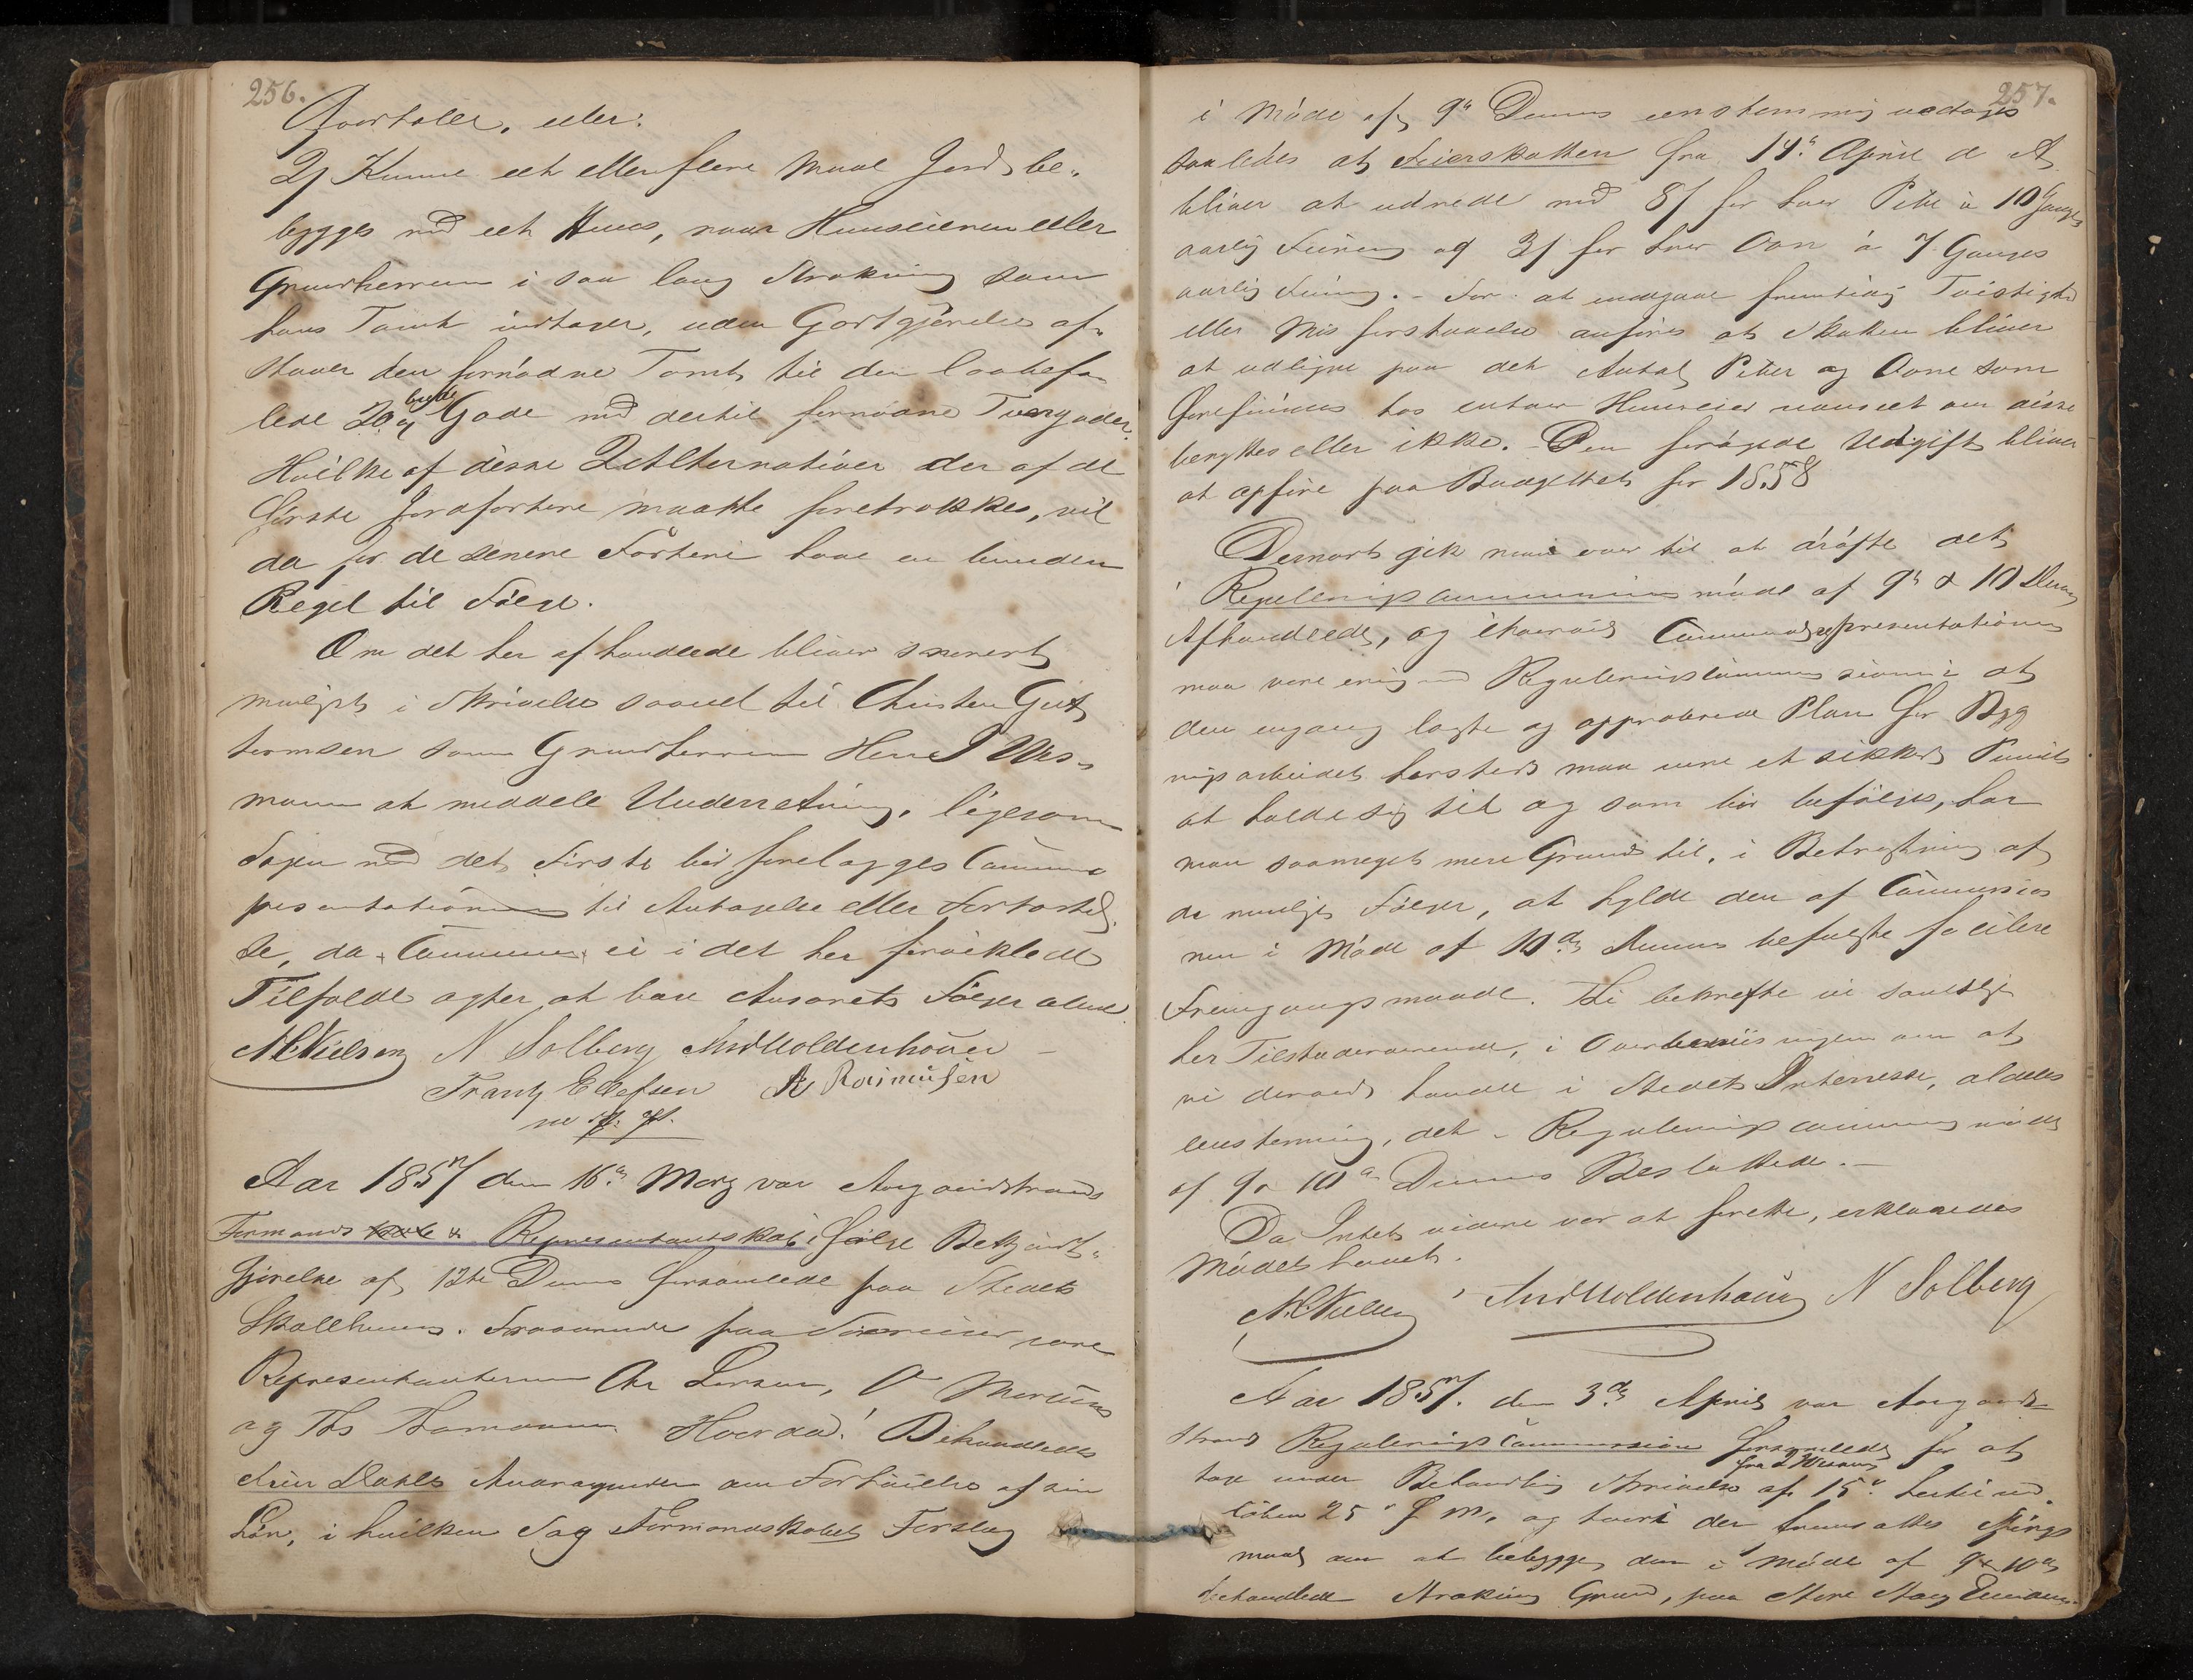 256.
Qvartaler, eller:
2) Kunne eet eller flere Maal Jord be-
bygges med eet Huus, naar Huuseieren eller
Grundherren i saa lang Strækning som
hans Tomt indtager, uden Godtgjørelse af-
staaer den fornødne Tomt til den lovbefa-
lede 20 al brede Gade med dertil fornødne Tvergader.
Hvilke af disse 2 Alternativer der af de
første Jordfæstere maatte foretrækkes, vil
da for de senere Fæstere have en bunden
Regel til Følge.
Om det her afhandlede bliver snarest
muligst i Skrivelse saavel til Christen Gut-
tormsen som Grundherren Herr J Wes-
mann at meddele Underretning, ligesom
Sagen med det første bør forelægges Commu-
præsentationen til Antagelse eller Forkastel-
se, da Communen ei i det her forviklede
Tilfælde agter at bære Ansvarets Følger alene.
N.C. Nielsen N Solberg And Moldenhauer –
Frantz Ellefsen A Rasmusen
m. p. P.
Aar 1857 den 16de Marz var Aasgaardstrands
Formands & Repræsentantskab ifølge Bekjendt-
gjørelse af 12te Dennes forsamlede paa Stedets
Skolehuus. Fraværende paa Søereiser vare
Repræsentanterne Chr Larsen, O
og Ths Hvorda! Behandledes
Dahls Andragende om Forhøielse af sin
Løn, i hvilken Sag Formandskabets Forslag
257.
i Møde af 9de Dennes eenstemmig vedtoges
saaledes at Feierskatten fra 14de April d. A.
bliver at udrede med 8 f for hver Pibe à 10 Ganges
aarlig Feining og 3 f for hver Ovn à 7 Ganges
aarlig Feining. – For at undgaae fremtidig Tvistighed
eller Misforstaaelse anføres at Skatten bliver
at udligne paa det Antal Piber og Ovne som
forefindes hos enhver Huuseier uanseet om disse
benyttes eller ikke. – Den forøgede Udgift bliver
at opføre paa Budgettet for 1858
Dernæst gik man over til at drøfte det
i Reguleringscommissions møde af 9de & 10 Dennes
Afhandlede, og ihvorvel Communerepresentationen
maa være enig med Reguleringscommissionen i at
den engang lagte og approberede Plan for Byg
ningsarbeidet hersteds maa være et sikkert Punkt
at holde sig til og som bør befølges, har
man saameget mere Grund til, i Betragtning af
de mulige Følger, at hylde den af Commissio
nen i Møde af 10de Dennes befulgte facilere
Fremgangsmaade. Thi bekræfte vi samtlige
her Tilstædeværende, i Overbeviisningen om at
vi derved handle i Stedets Interesse, aldeles
eenstemmig, det i Reguleringscommissions møde
af 9. 10de Dennes Besluttede. –
Da Intet videre var at forrette, erklæredes
Mødet hævet.
N.C. Nielsen And Moldenhauer N Solberg
Aar 1857. den 3de April var Aasgaard-
strands Reguleringscommission forsamlede for at
tage under Behandling Skrivelse fra J Wesmann af 15de hertil ind
løben 25de f. M. og hvori der fremsattes Spørgs
maal om at bebygge den i Møde af 9 & 10de
behandlede Stræking Grund, paa Store Aasg